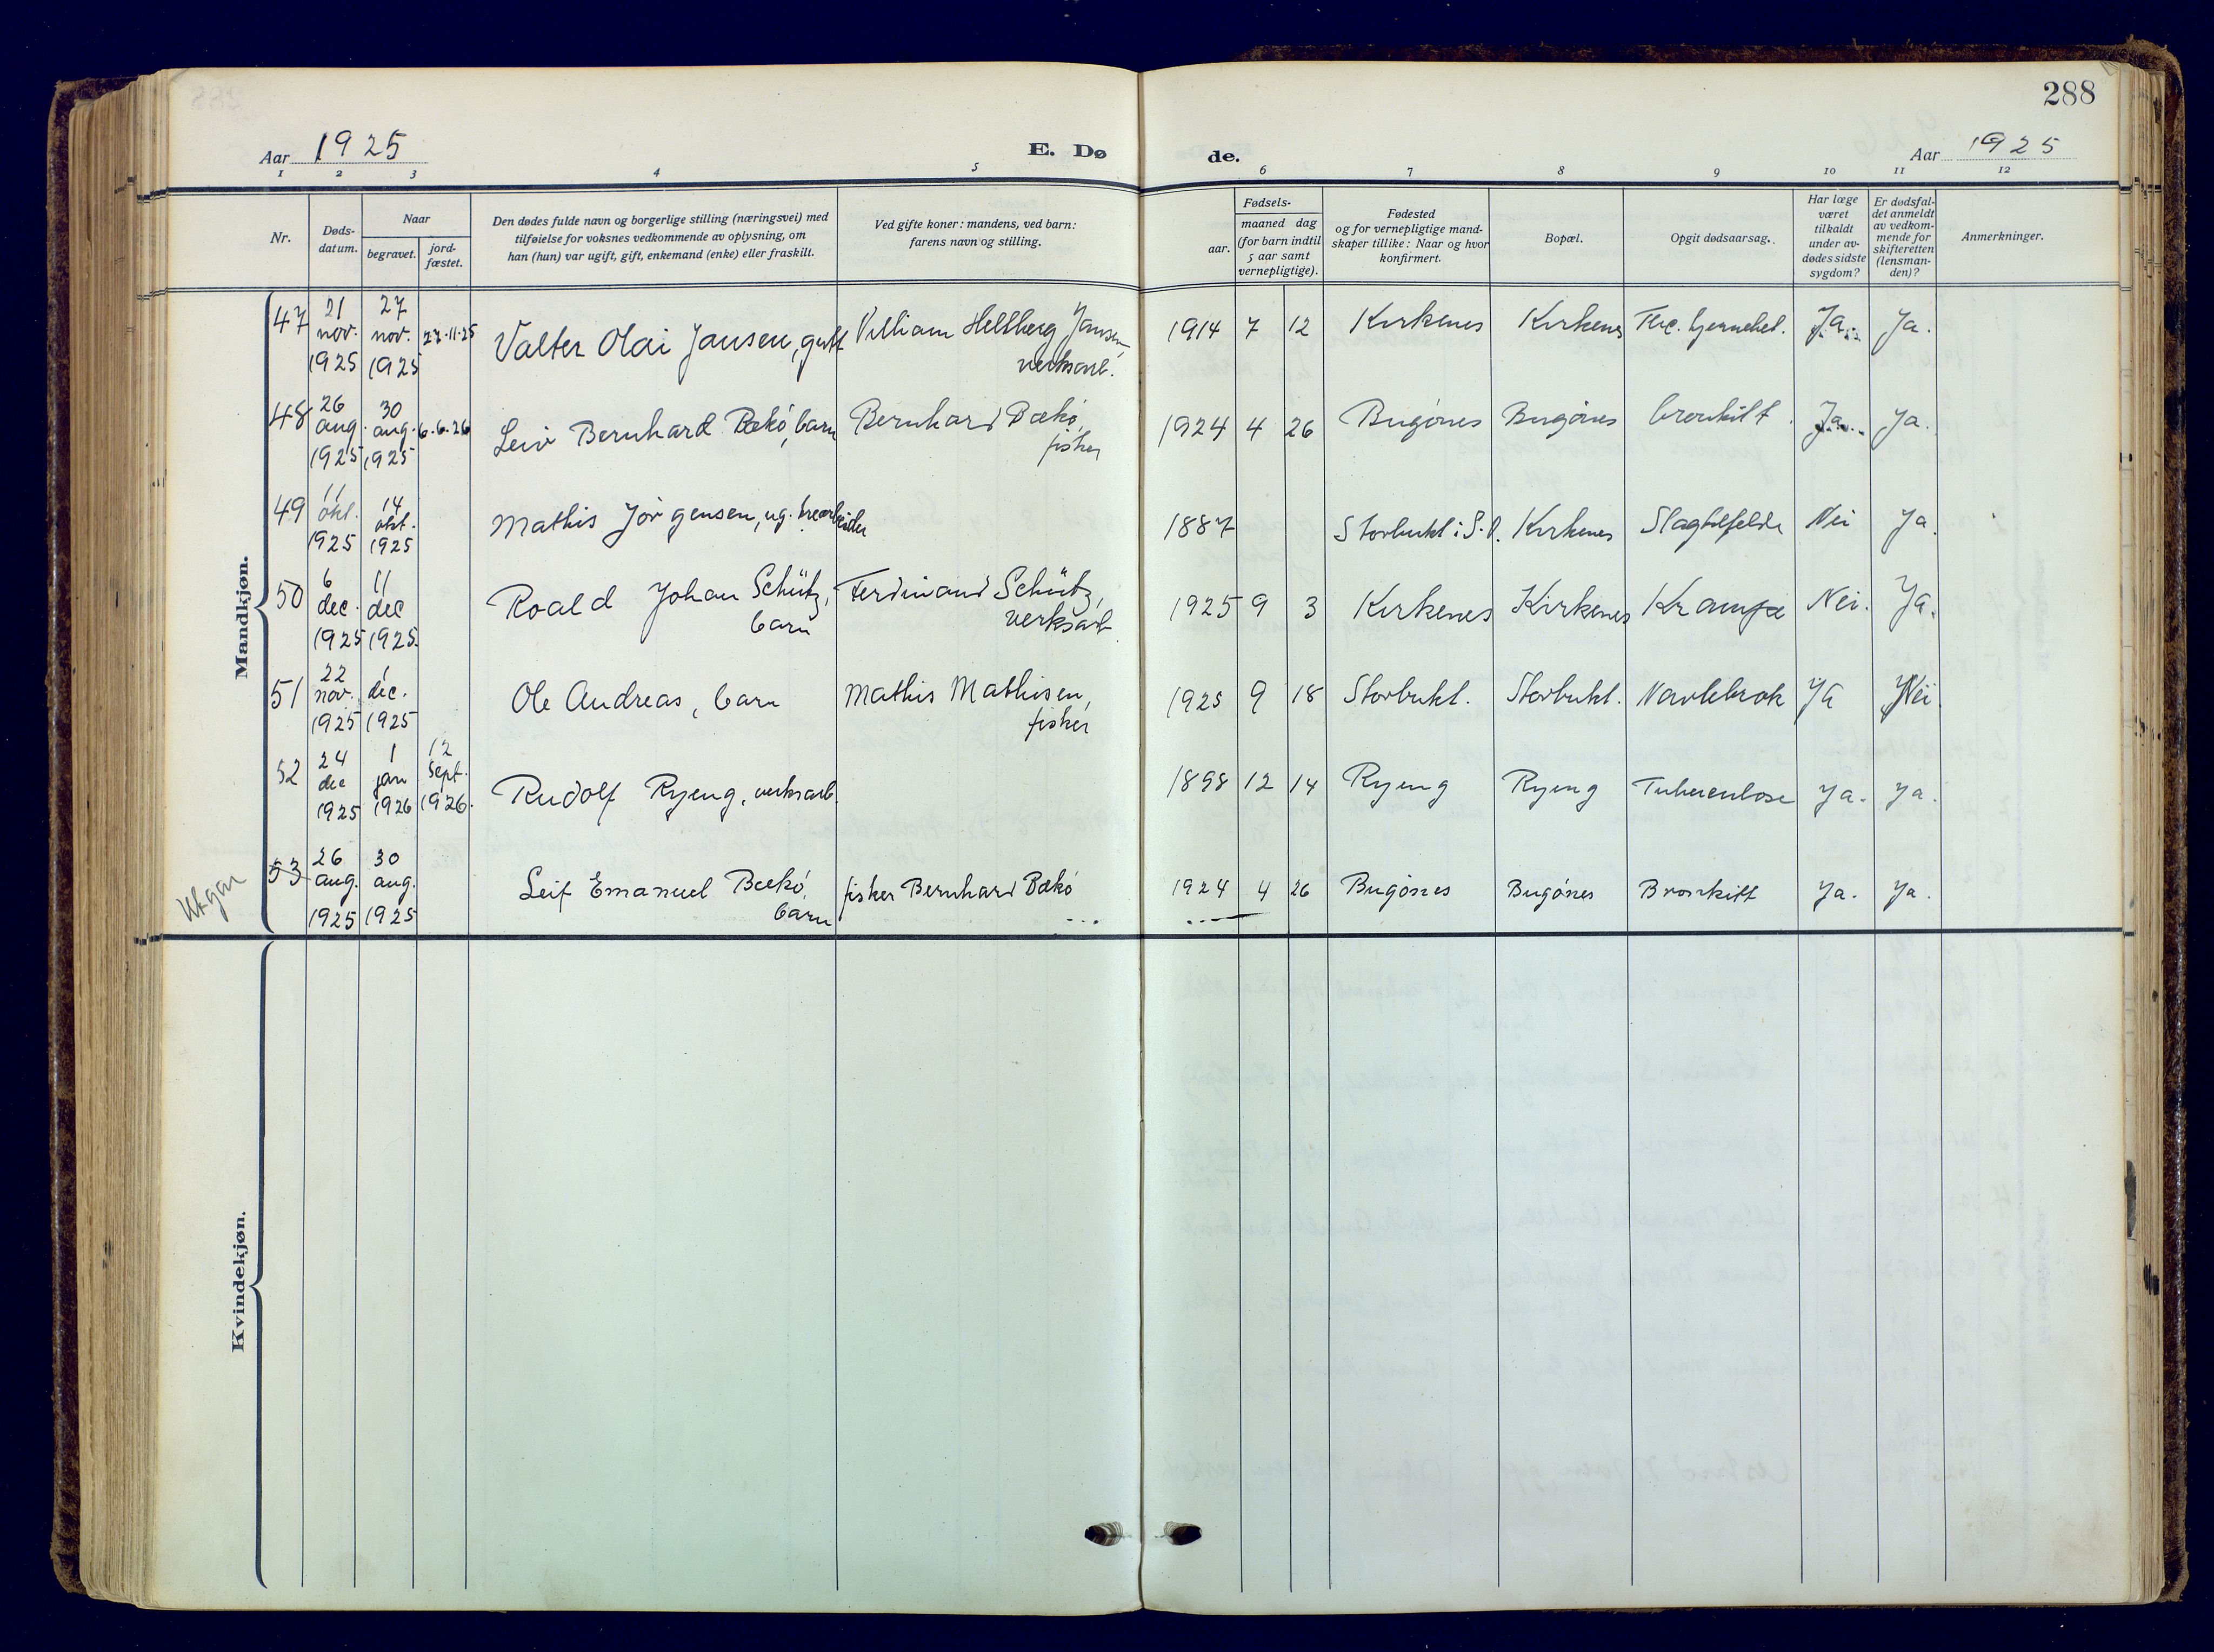 288
Aar 1925
E. Dø de.
Aar 1925
1 2 3 4 5 6 7 8 9 10 11 12
Nr.
Døds-
datum.
Naar
begravet.
jord-
fæstet.
Den dødes fulde navn og borgerlige stilling (næringsvei) med
tilføielse for voksnes vedkommende av oplysning, om
han (hun) var ugift, gift, enkemand (enke) eller fraskilt.
Ved gifte koner: mandens, ved barn:
farens navn og stilling.
Fødsels-
aar.
maaned dag
(for barn indtil
5 aar samt
vernepligtige).
Fødested
og for vernepligtige mand-
skaper tillike: Naar og hvor
konfirmert.
Bopæl.
Opgit dødsaarsag.
Har læge
været
tilkaldt
under av-
dødes sidste
sygdom?
Er dødsfal-
det anmeldt
av vedkom-
mende for
skifteretten
(lensman-
den)?
Anmerkninger.
Mandkjøn.
47 21 nov. 1925 27 nov. 1925 27.11.25 Valter Olai Jansen, gutt Villiam Hellberg Jansen, verksarb. 1914 7 12 Kirkenes Kirkenes Ja. Ja.
48 26 aug. 1925 30 aug. 1925 6.6.26 Leiv Bernhard Bækó, barn Bernhard Bækó, fisker 1924 4 26 Bugónes Bugónes bronkitt. Ja. Ja.
49 11 okt. 1925 14 okt. 1925 Mathis Jórgensen, ug. 1887 Storbukt i S.V. Kirkenes Slagtilfelde Nei Ja.
50 6 dec. 1925 11 dec 1925. Roald Johan Schütz, barn Ferdinand Schütz, verksarb. 1925 9 3 Kirkenes Kirkenes Krampe Nei. Ja.
51 22 nov. 1925 1 dec. 1925 Ole Andreas, barn Mathis Mathisen, fisker 1925 9 18 Storbukt. Storbukt. Navlebrok Ja Nei.
52 24 dec 1925 1 jan 1926 12 Sept. 1926. Rudolf Ryeng, verksarb. 1898 12 14 Ryeng Ryeng Tuberculose Ja. Ja.
Utgår
53 26 aug. 1925 30 aug. 1925 Leif Emanuel Bækó, barn fisker Bernhard Bækó 1924 4 26 Bugónes Bugónes Bronkitt Ja. Ja.
Kvindekjøn.